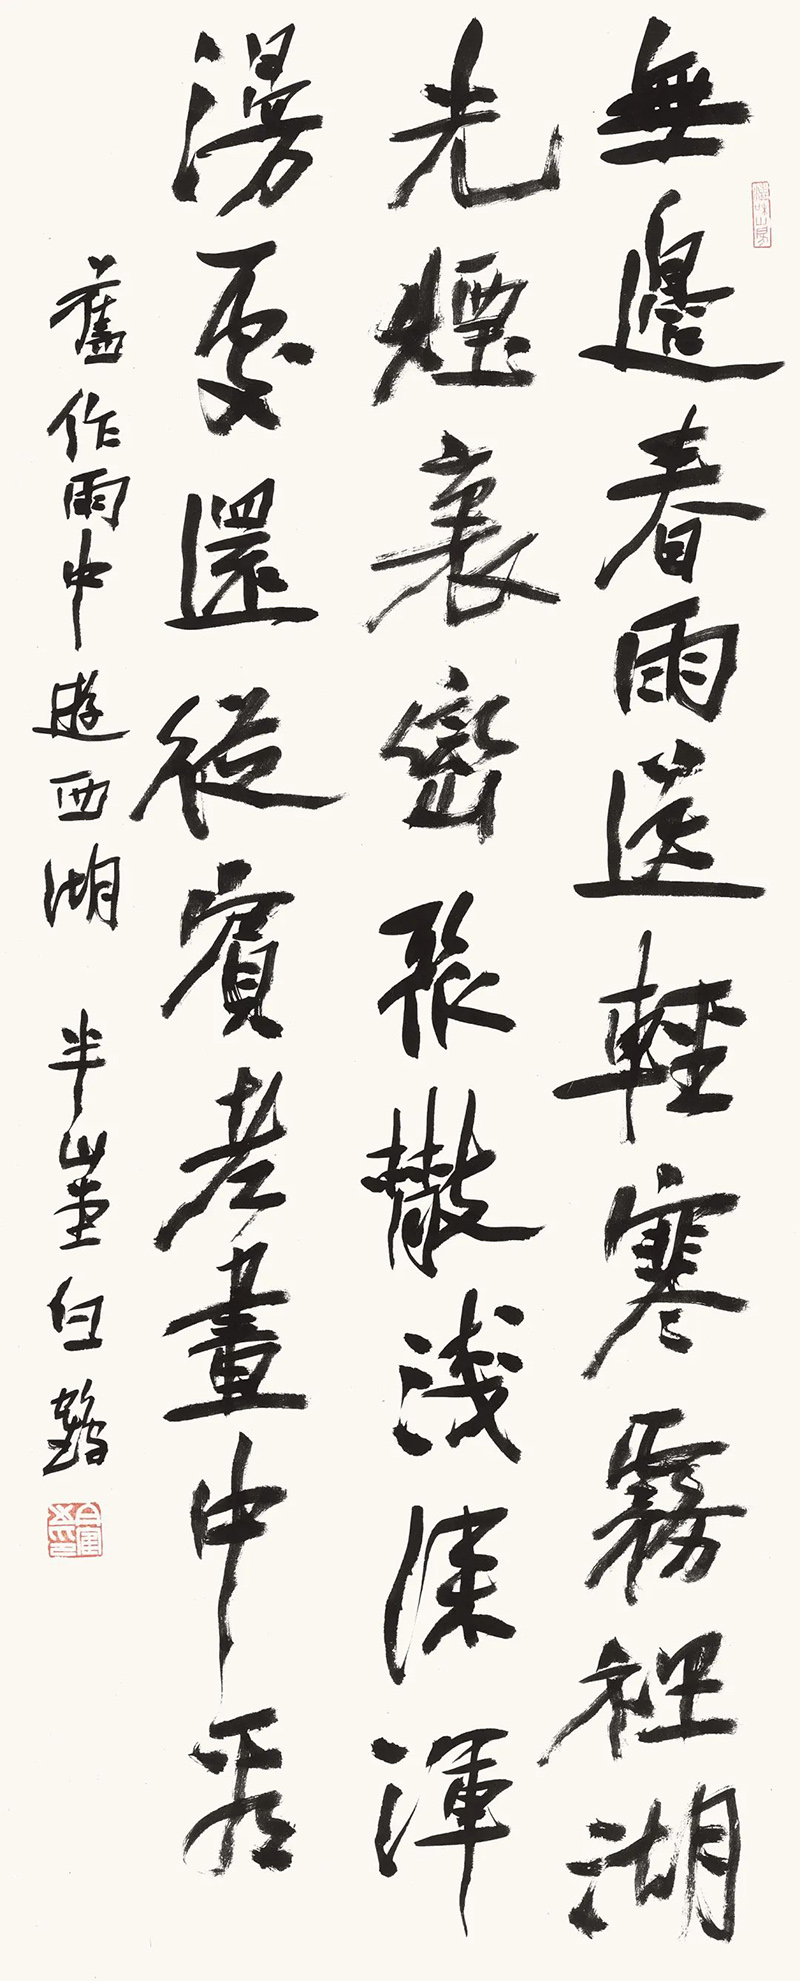 無邊春雨送輕寒霧裡湖
光煙裏巒聚散淺深渾
漫處還從賓老畫中看
舊作雨中遊西湖 半山堂白鶴